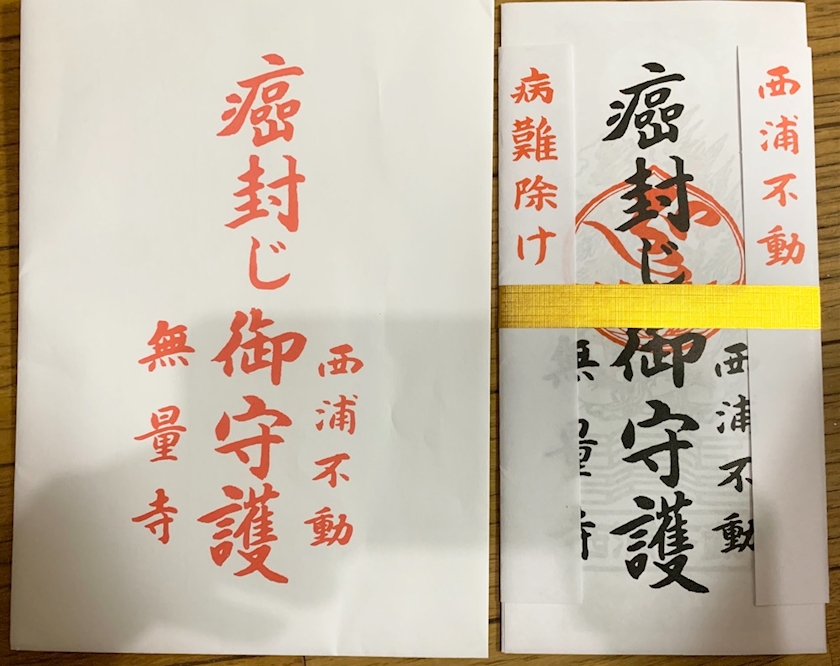 西浦不動
癌封じ御守護
無量寺
西浦不動
西浦不動
癌封じ御守護
無量寺
病難除け